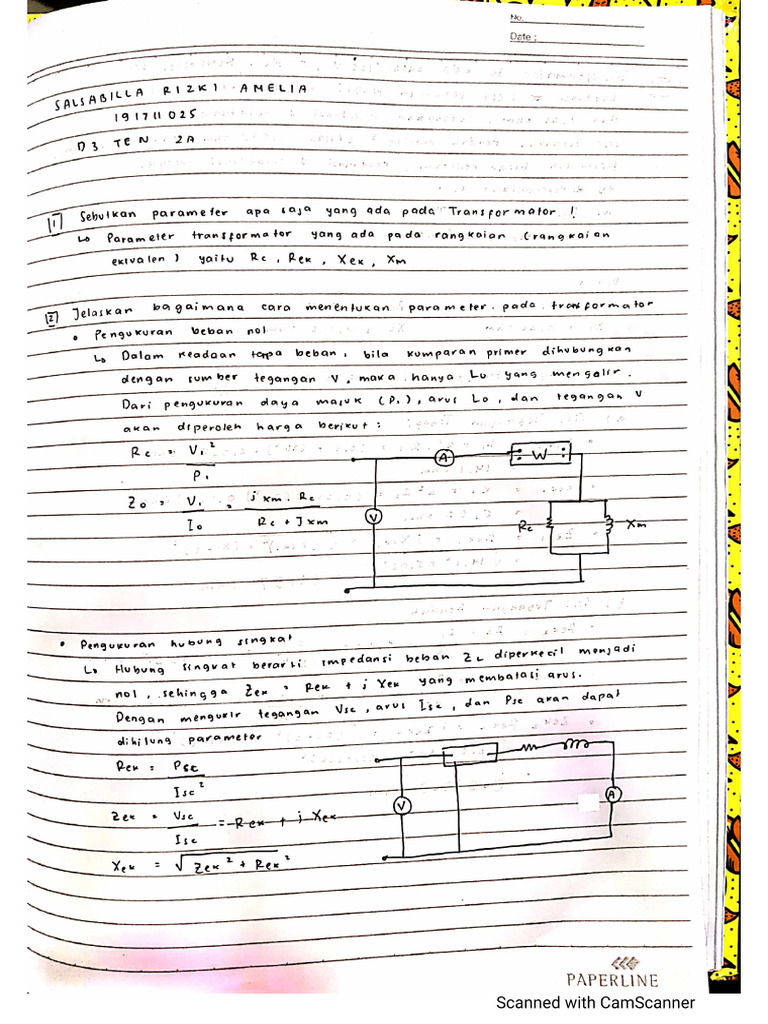 No.
Date :
SALSABILLA RIZKI AMELIA
191711025
D3 TEN 2A
1 Sebutkan parameter apa saja yang ada pada Transformator !
↳ Parameter transformator yang ada pada rangkaian (rangkaian
ekivalen) yaitu Rc, Rek, Xek, Xm
2 Jelaskan bagaimana cara menentukan parameter pada transformator
• Pengukuran beban nol
↳ Dalam keadaan tapa beban, bila kumparan primer dihubungkan
dengan sumber tegangan V, maka hanya Lo yang mengalir.
Dari pengukuran daya masuk (P1), arus Lo, dan tegangan V
akan diperoleh harga berikut :
Rc = V1² / P1
A W
Zo = V1 / Io = j Xm . Rc / Rc + J Xm
V Rc Xm
• Pengukuran hubung singkat
↳ Hubung singkat berarti impedansi beban ZL diperkecil menjadi
nol, sehingga Zek = Rek + j Xek yang membatasi arus.
Dengan mengukir tegangan Vsc, arus Isc, dan Psc akan dapat
dihitung parameter
Rek = Psc / Isc²
V A
Zek = Vsc / Isc = Rek + j Xek
Xek = √Zek² + Rek²
PAPERLINE
Scanned with CamScanner